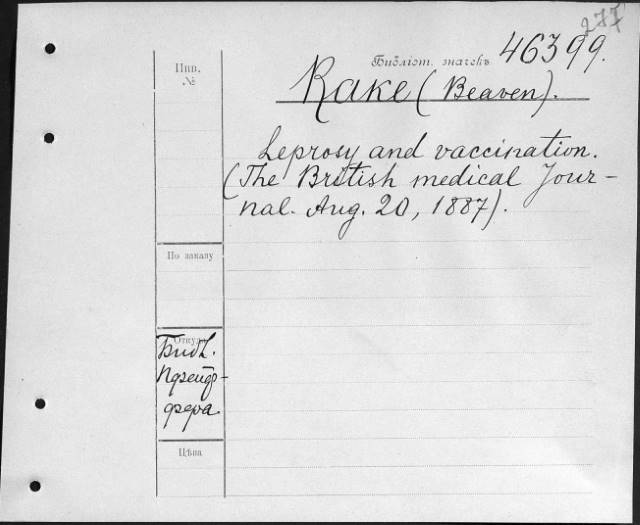 277
Библіот. значекъ 46399.
Инв.
№
Rake (Beaven).
Leprosy and vaccination.
(The British medical Jour-
nal. Aug. 20, 1887).
По заказу
Откуда
Библ.
Пфейф-
фера
Цѣна